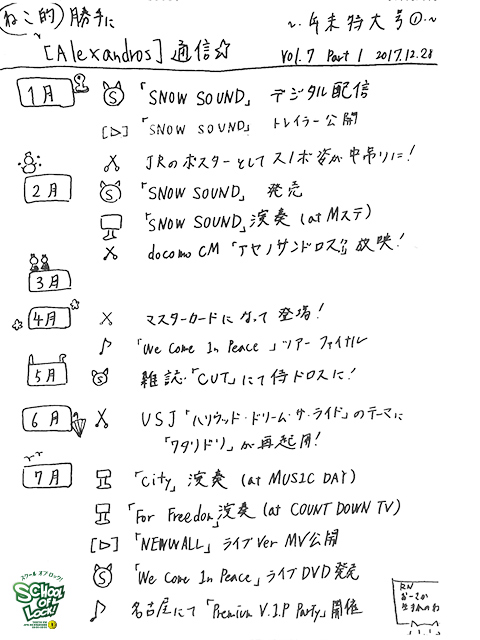 ねこ的 勝手に
[Alexandros] 通信☆
～年末特大号①～
Vol.7 Part 1 2017.12.28
1月
「SNOW SOUND」 デジタル配信
「SNOW SOUND」 トレイラー公開
JRのポスターとしてスノボ姿が中吊りに!
2月
「SNOW SOUND」 発売
「SNOW SOUND」演奏 (at Mステ)
docomo CM 「アセノサンドロス?」放映!
3月
4月
マスターカードになって登場!
「We Come In Peace」ツアーファイナル
5月
雑誌「CUT」にて侍ドロスに!
6月
USJ「ハリウッド・ドリーム・ザ・ライド」のテーマに
「ワタリドリ」が再起用!
7月
「City」演奏 (at MUSIC DAY)
「For Freedom」演奏 (at COUNT DOWN TV)
「NEW WALL」ライブ Ver MV公開
「We Come In Peace」ライブDVD発売
名古屋にて「Premium V.I.P Party」開催
スクール オブ ロック!
SCHOOL OF LOCK!
RN